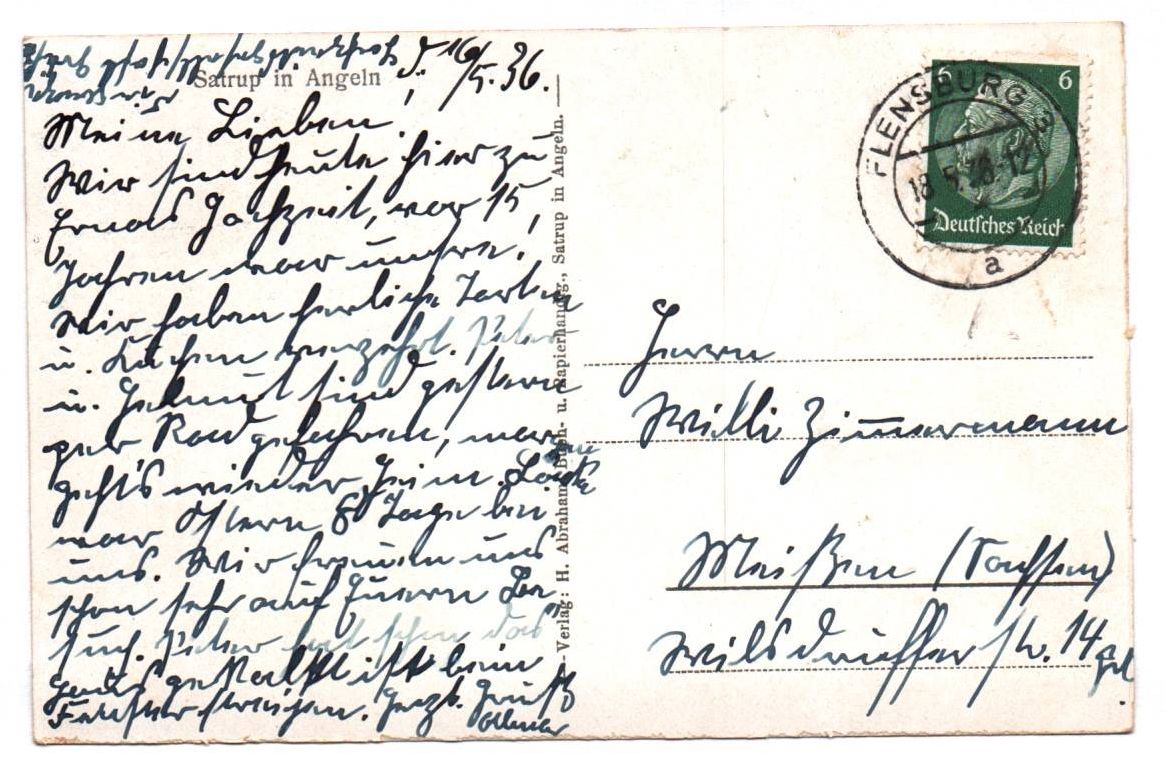 Satrup in Angeln
d. 16/5. 36.
Meine Lieben!
Wir sind heute hier zu
Ernas Hochzeit, vor 15
Jahren war unsre!
Wir haben herrliche Torten
u. Kuchen verzehrt. Peter
u. Helmut sind gestern
per Rad gefahren, morgen
geht's wieder heim.
war Ostern 8 Tage bei
uns. Wir freuen uns
schon sehr auf Euern Be
such. Peter hat schon das
ganze Haus ist beim
Fenster streichen. Herzl. Grüße
Verlag: H. Abraham, Buch- u. Papierhandlg., Satrup in Angeln.
FLENSBURG
18.5.36.-12
a
6
6
Deutsches Reich
Herrn
Willi Zimmermann
Meißen (Sachsen)
Wilsdrufferstr. 14